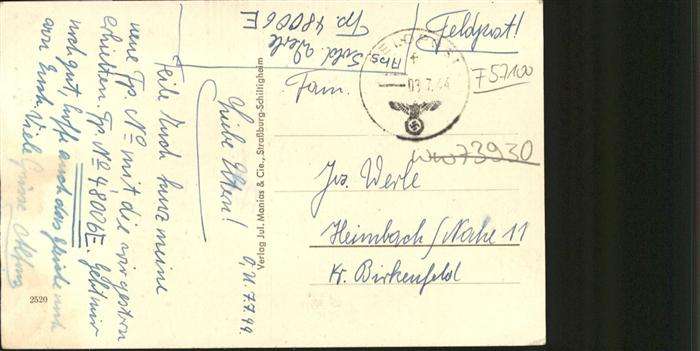 Feldpost!
Abs. Sold. Werle
Fp. 48006E
FELDPOST
03.7.44
F57100
Fam.
WW73930
Jos. Werle
Heimbach/Nahe 11
Kr. Birkenfeld
Verlag Jul. Manias & Cie., Straßburg-Schiltigheim
O.U. 7.7.44
Liebe Eltern!
Teile Euch kurz meine
neue Fp. No mit die wir gestern
erhielten. Fp. No 48006E. Geht mir
noch gut, hoffe auch das gleiche
von Euch. Viele Grüsse
2520